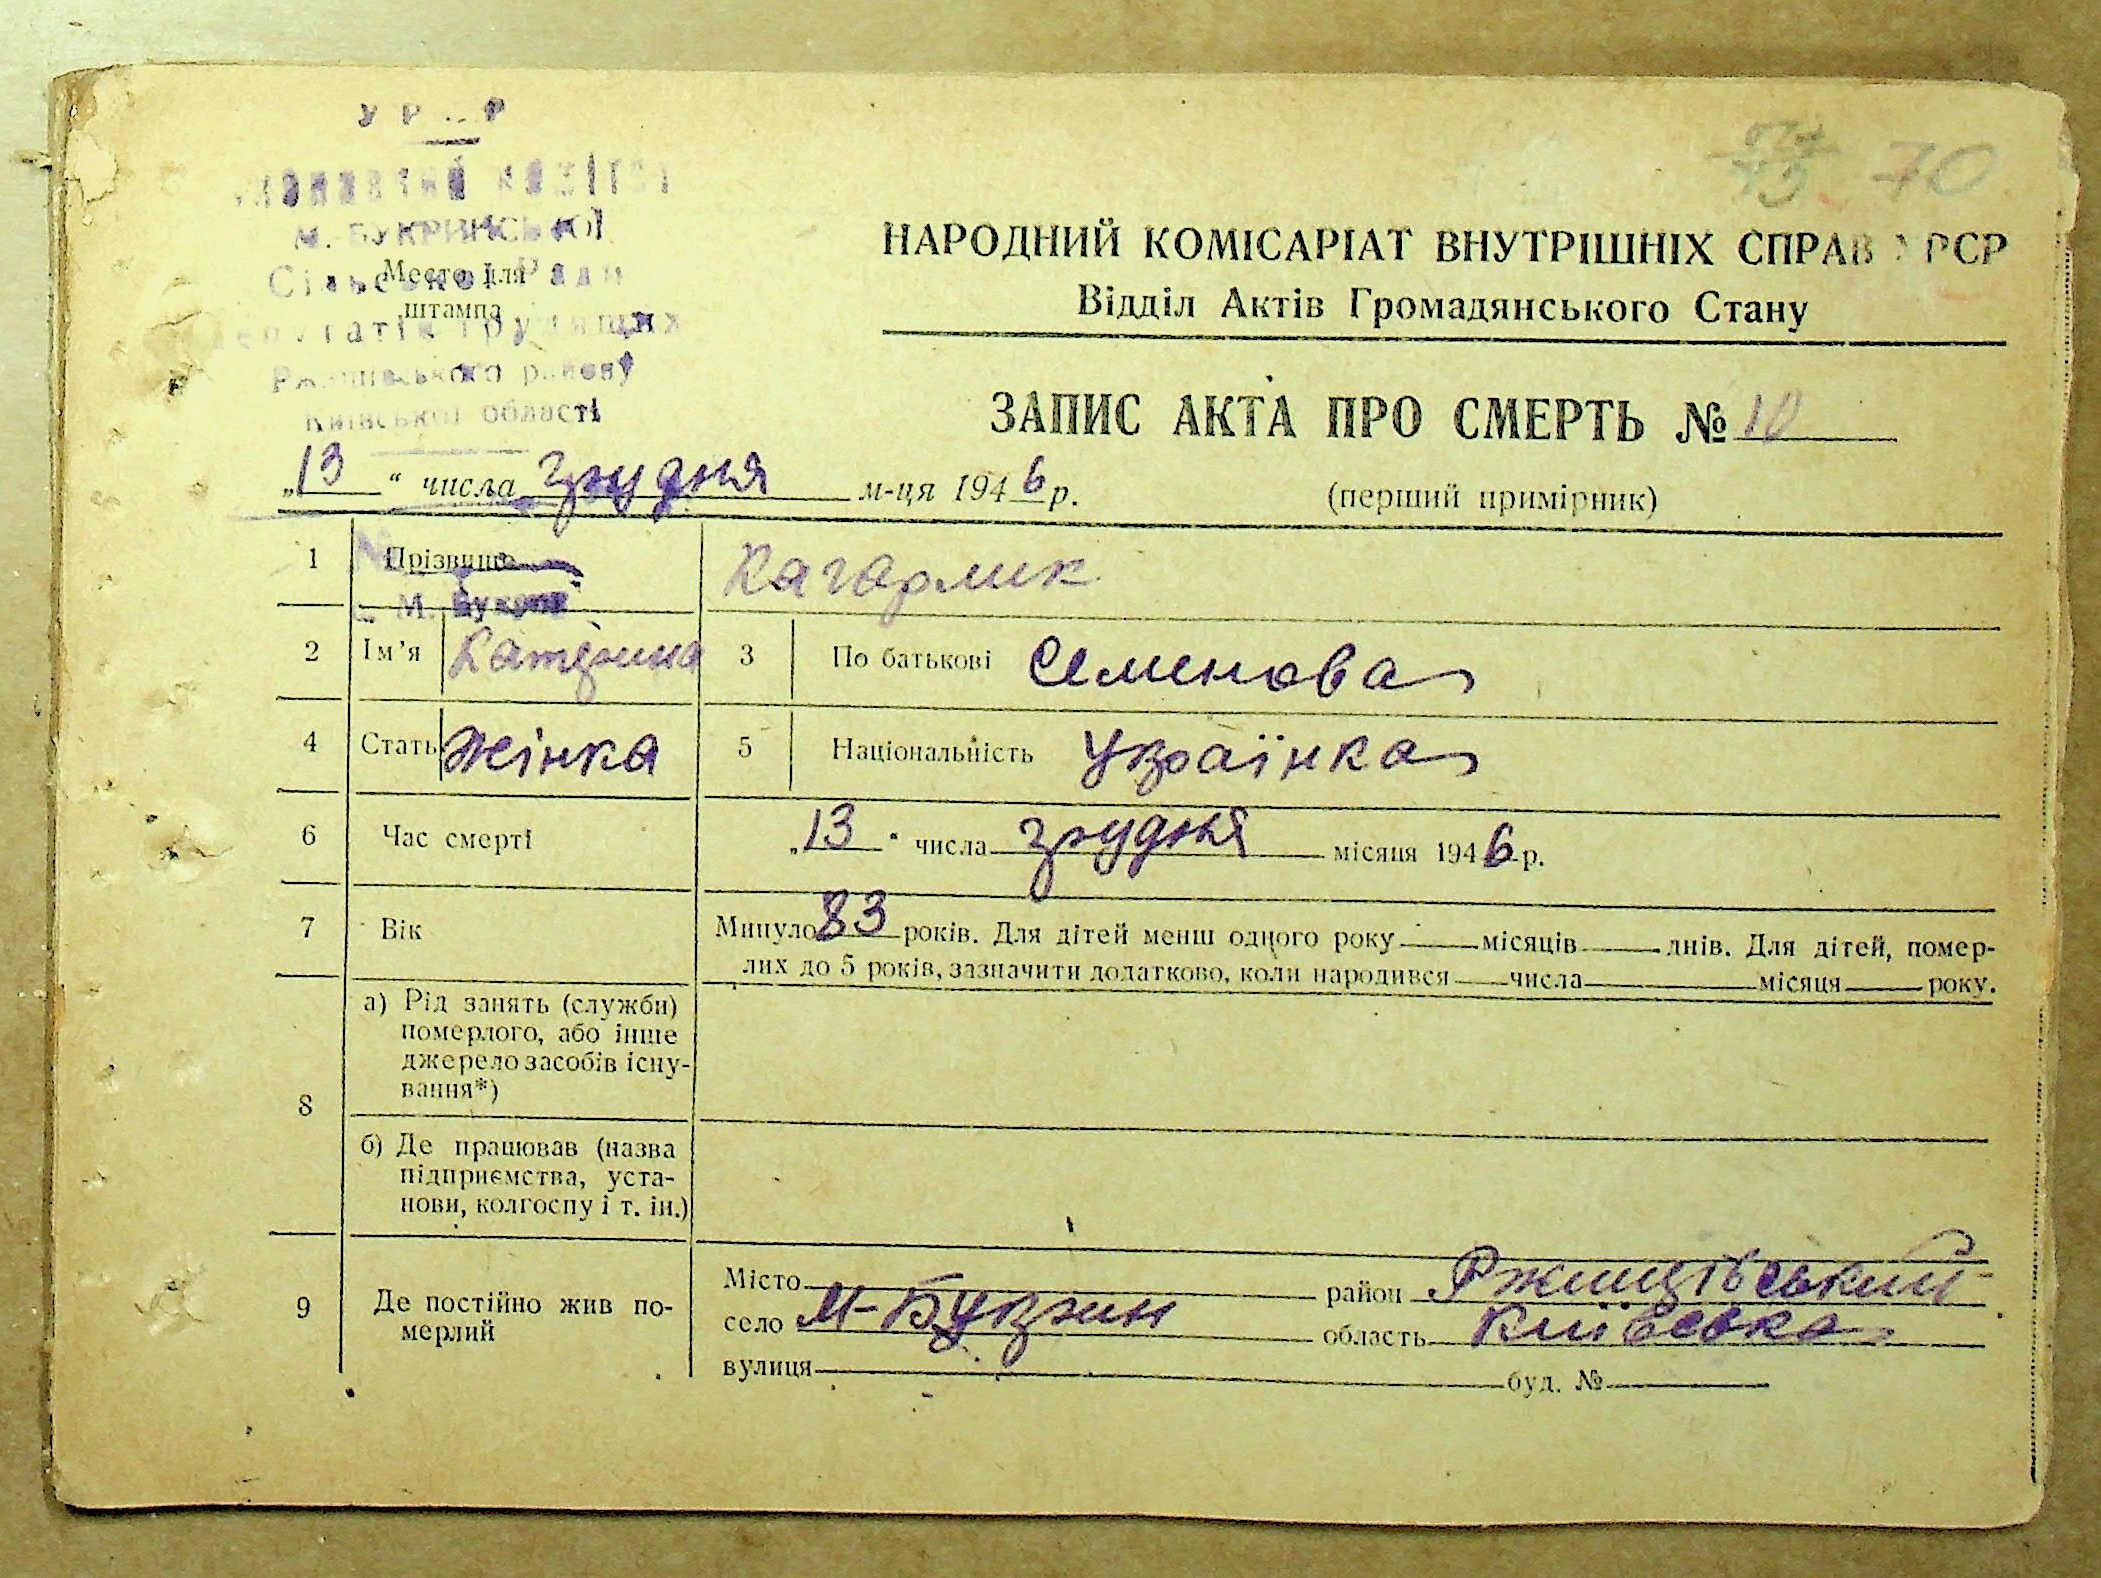 70
М. БУКРИНСЬКОЇ
Сільської Ради
Место для
штампа
Ржищівського району
Київської області
НАРОДНИЙ КОМІСАРІАТ ВНУТРІШНІХ СПРАВ УРСР
Відділ Актів Громадянського Стану
ЗАПИС АКТА ПРО СМЕРТЬ № 10
„13“ числа грудня м-ця 1946 р.
(перший примірник)
1 Прізвище Кагарлик
2 Ім’я Катерина 3 По батькові Семенова
4 Стать Жінка 5 Національність Українка
6 Час смерті „13“ числа грудня місяця 1946 р.
7 Вік Минуло 83 років. Для дітей менш одного року місяців днів. Для дітей, помер-
лих до 5 років, зазначити додатково, коли народився числа місяця року.
8 а) Рід занять (служби)
померлого, або інше
джерело засобів існу-
вання*)
б) Де працював (назва
підприємства, уста-
нови, колгоспу і т. ін.)
9 Де постійно жив по-
мерлий
Місто район Ржищівський
село М-Букрин область Київська
вулиця буд. №